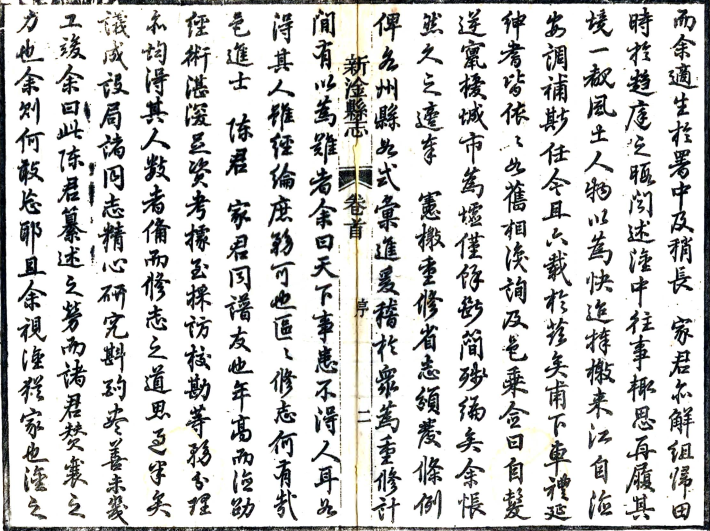 而余適生於署中及稍長　家君亦解組歸田
時於趨庭之暇閒述淦中往事輒思再履其
境一觀風土人物以為快迨捧檄来江自淦
安調補斯任今且六載於茲矣甫下車禮延
紳耆皆依〻如舊相渙詢及邑乘僉曰自髮
逆竄擾城市為墟僅餘斷簡殘編矣余悵
然久之適奉　憲檄重修省志頒發條例
俾各州縣如式彙進爰稽於眾為重修計
新淦縣志　卷首　序　二
間有以為難者余曰天下事患不得人耳如
得其人雖經綸庶務可也區〻修志何有哉
邑進士　陳君　家君同譜友也年高而德劭
經術湛深足資考據至採訪校勘等務分理
亦均得其人数者備而修志之道思過半矣
議成設局諸同志精心研究斟酌盡善未幾
工竣余曰此陳君纂述之勞而諸君贊襄之
力也余則何敢忘耶且余視淦猶家也淦之